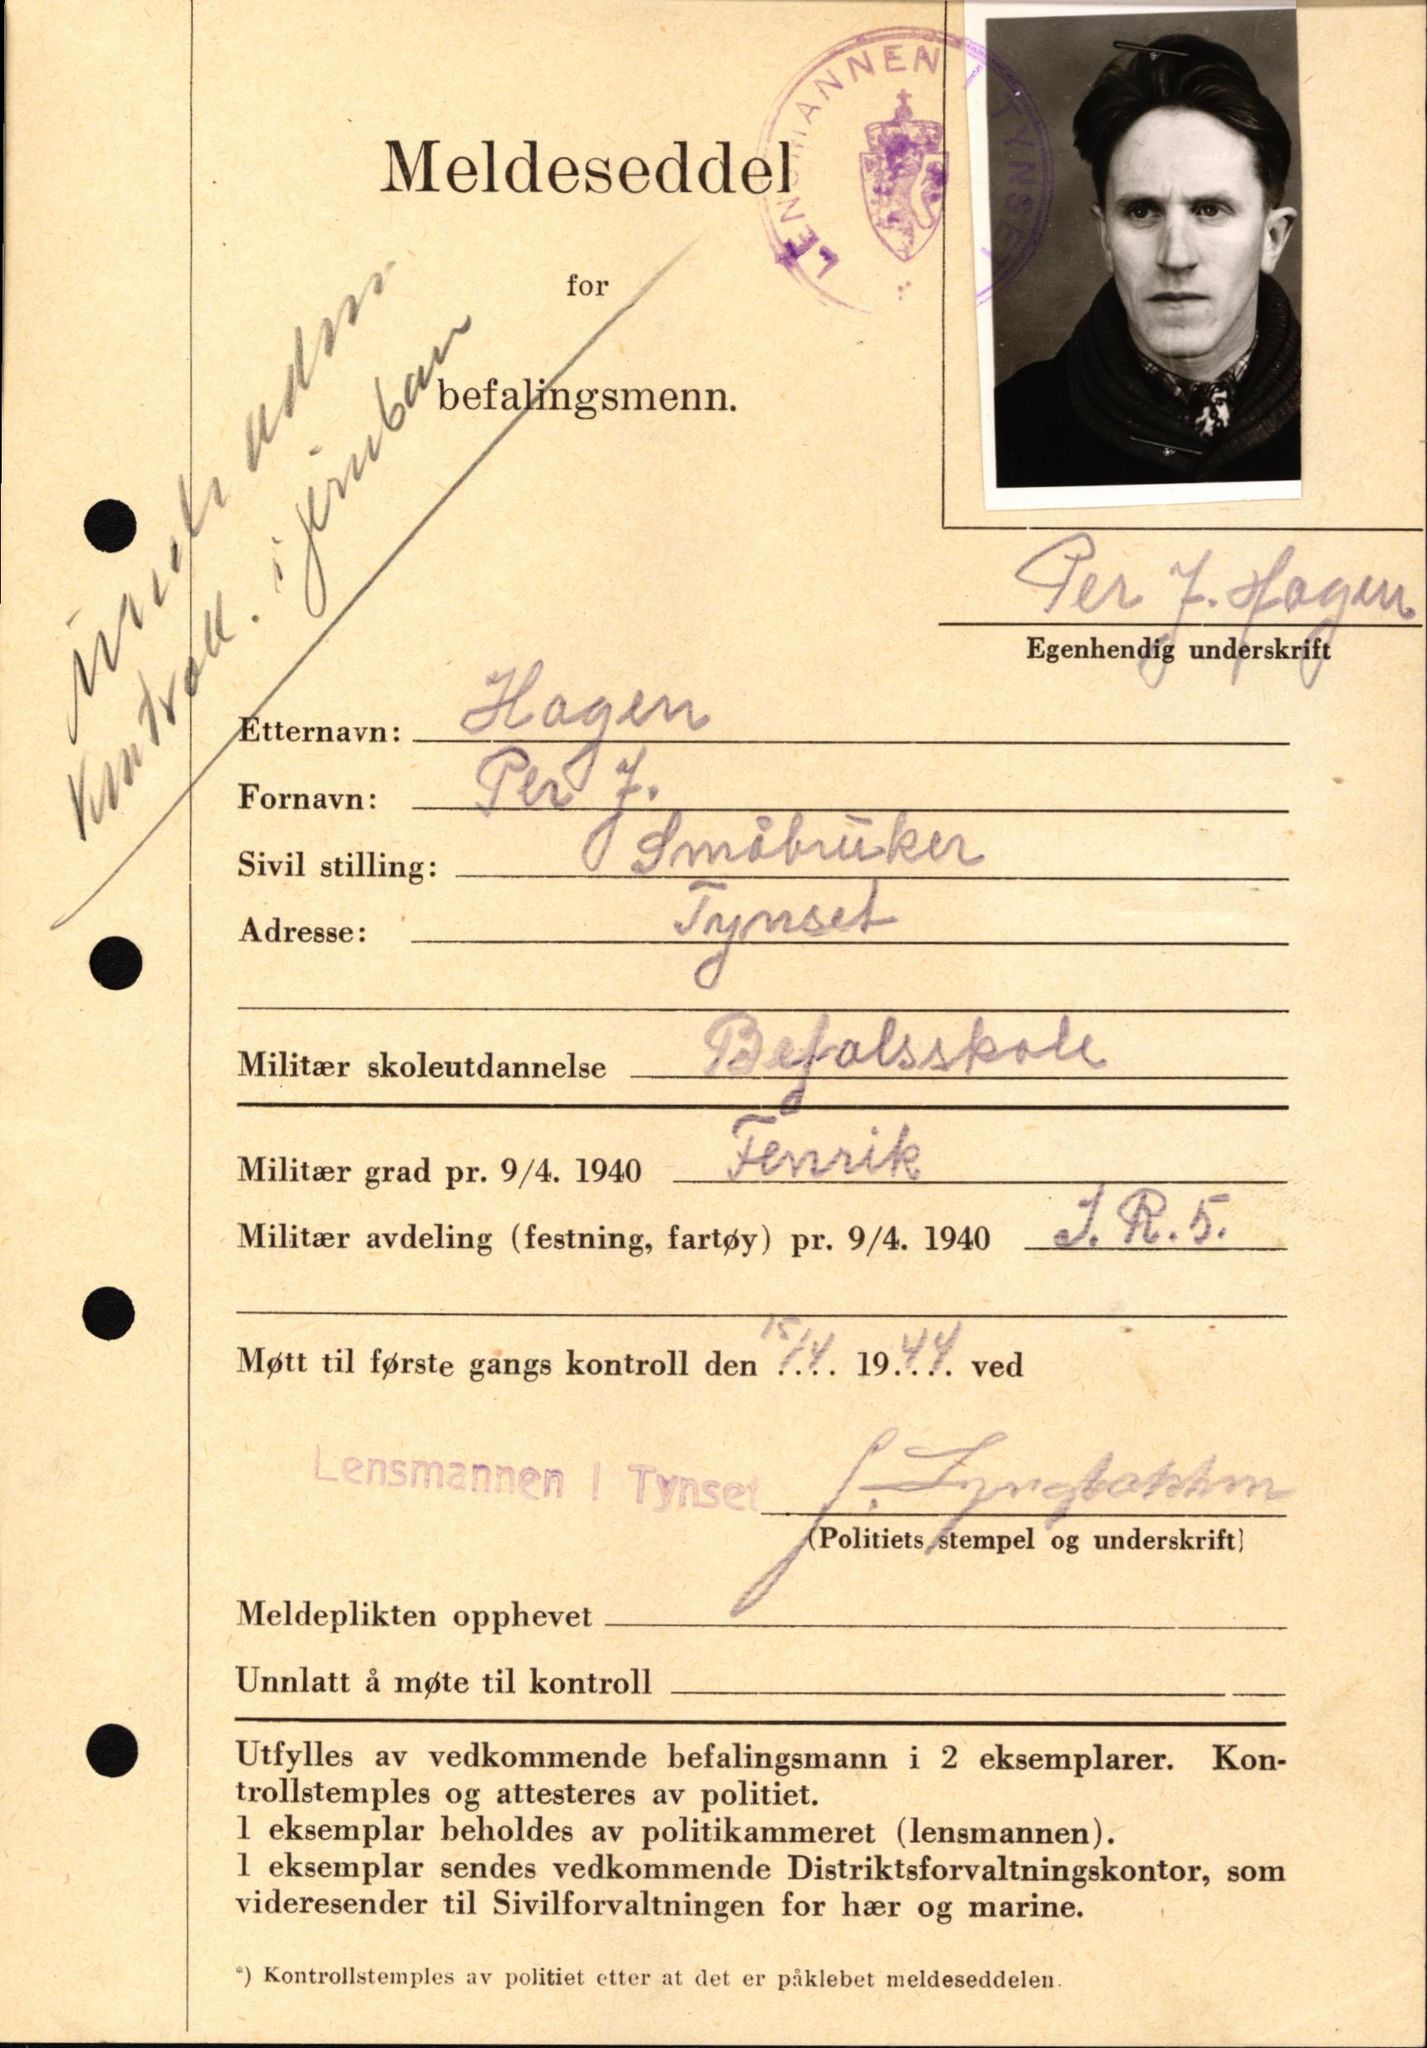 LENSMANNEN I TYNSET
Meldeseddel
for
befalingsmenn.
Per J. Hagen
Egenhendig underskrift
kontroll. i jernban
Etternavn: Hagen
Fornavn: Per J.
Sivil stilling: Småbruker
Adresse: Tynset
Militær skoleutdannelse Befalsskole
Militær grad pr. 9/4. 1940 Fenrik
Militær avdeling (festning, fartøy) pr. 9/4. 1940 I. R. 5.
Møtt til første gangs kontroll den 15/4 1944 ved
Lensmannen I Tynset
(Politiets stempel og underskrift)
Meldeplikten opphevet
Unnlatt å møte til kontroll
Utfylles av vedkommende befalingsmann i 2 eksemplarer. Kon-
trollstemples og attesteres av politiet.
1 eksemplar beholdes av politikammeret (lensmannen).
1 eksemplar sendes vedkommende Distriktsforvaltningskontor, som
videresender til Sivilforvaltningen for hær og marine.
*) Kontrollstemples av politiet etter at det er påklebet meldeseddelen.